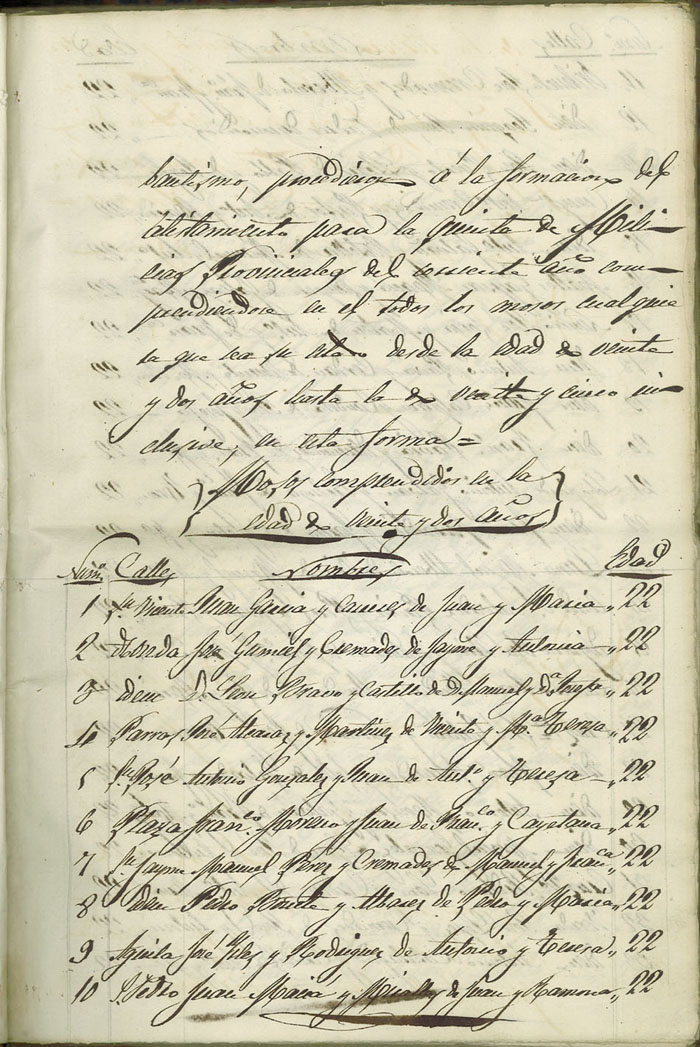 bautismo, procedieron á la formacion del
alistamiento para la quinta de Mili-
cias Provinciales del corriente año com-
prendiendose en el todos los mosos, cualquie
ra que sea su estado desde la edad de veinte
y dos años hasta la de veinte y cinco in-
clusive, en esta forma=
Mosos comprendidos en la
edad de veinte y dos años
Num.º Calles Nombres Edad
1 Sn. Vicente Juan Garcia y de Juan y Maria „ 22
2 José Gumiel y Cremades de Jayme y Antonia „ 22
3 idem D. Leon Bravo y Castillo de D. Manuel y Dª Josefa „ 22
4 Parras José Alcaraz y Martinez de Vicente y Mª Teresa „ 22
5 Sn. José Antonio Gonzalez y Juan de Antº y Teresa „ 22
6 Plaza Franco. Moreno y Juan de Franco. y Cayetana „ 22
7 Sn. Jayme Manuel Perez y Cremades de Manuel y Franca „ 22
8 idem Pedro y de Pedro y Maria „ 22
9 Aguila José Giles y Rodriguez de Antonio y Teresa „ 22
10 S. Pedro Juan Maciá y Miralles de Juan y Ramona „ 22